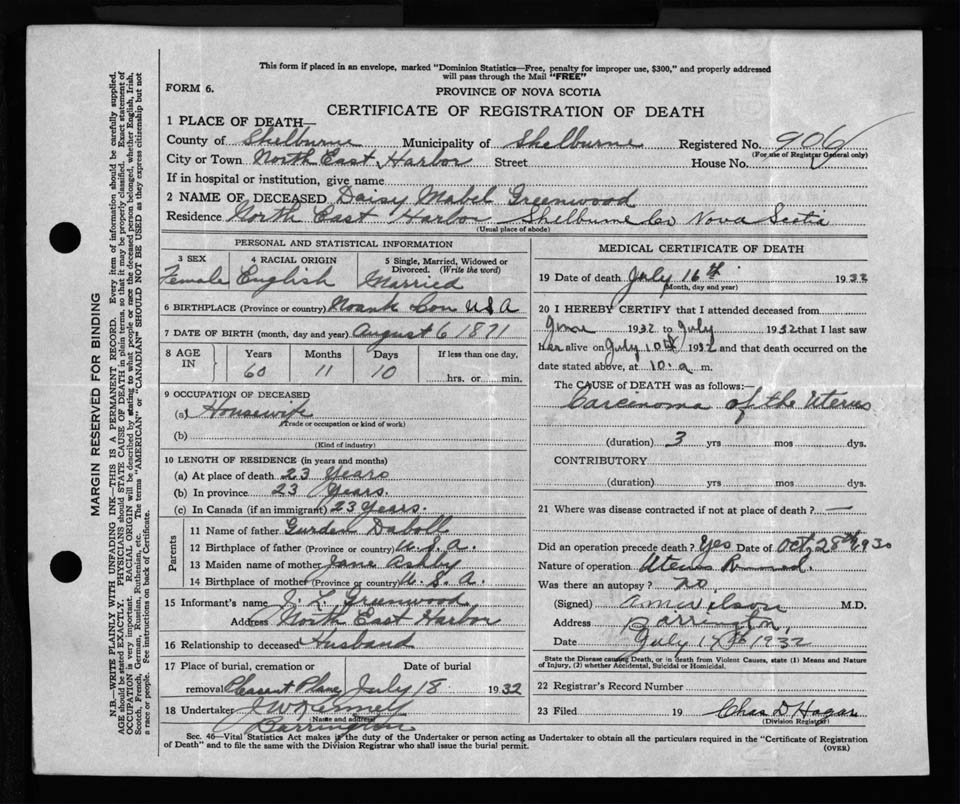 This form if placed in an envelope, marked "Dominion Statistics—Free, penalty for improper use, $300," and properly addressed
will pass through the Mail "FREE"
FORM 6.
PROVINCE OF NOVA SCOTIA
CERTIFICATE OF REGISTRATION OF DEATH
1 PLACE OF DEATH—
County of Shelburne Municipality of Shelburne Registered No. 906
(For use of Registrar General only)
City or Town North East Harbor Street House No.
If in hospital or institution, give name
2 NAME OF DECEASED Daisy Mabel Greenwood
Residence North East Harbor Shelburne Co Nova Scotia
(Usual place of abode)
PERSONAL AND STATISTICAL INFORMATION
3 SEX 4 RACIAL ORIGIN 5 Single, Married, Widowed or
Divorced. (Write the word)
Female English Married
6 BIRTHPLACE (Province or country) Noank Con USA
7 DATE OF BIRTH (month, day and year) August 6 1871
8 AGE IN Years Months Days If less than one day,
60 11 10 hrs. or min.
9 OCCUPATION OF DECEASED
(a) Housewife
(Trade or occupation or kind of work)
(b)
(Kind of industry)
10 LENGTH OF RESIDENCE (in years and months)
(a) At place of death 23 Years
(b) In province 23 Years.
(c) In Canada (if an immigrant) 23 Years.
Parents
11 Name of father Gurden Daboll
12 Birthplace of father (Province or country) U.S.A.
13 Maiden name of mother Jane Ashby
14 Birthplace of mother (Province or country) U.S.A.
15 Informant's name J. L. Greenwood
Address North East Harbor
16 Relationship to deceased Husband
17 Place of burial, cremation or Date of burial
removal July 18 1932
18 Undertaker
(Name and address)
Barrington
MEDICAL CERTIFICATE OF DEATH
19 Date of death July 16th 1932
(Month, day and year)
20 I HEREBY CERTIFY that I attended deceased from
June 1932 to July 1932 that I last saw
her alive on July 10th 1932 and that death occurred on the
date stated above, at 10. a m.
The CAUSE OF DEATH was as follows:—
Carcinoma of the Uterus
(duration) 3 yrs mos dys.
CONTRIBUTORY
(duration) yrs mos dys.
21 Where was disease contracted if not at place of death? —
Did an operation precede death? Yes Date of Oct 28th 1930
Nature of operation Uterus Removed.
Was there an autopsy? no
(Signed) A M Wilson M.D.
Address Barrington,
Date July 1932
State the Disease causing Death, or in death from Violent Causes, state (1) Means and Nature
of Injury, (2) whether Accidental, Suicidal or Homicidal.
22 Registrar's Record Number
23 Filed 19 Chas D Hagar
(Division Registrar)
Sec. 46—Vital Statistics Act makes it the duty of the Undertaker or person acting as Undertaker to obtain all the particulars required in the "Certificate of Registration
of Death" and to file the same with the Division Registrar who shall issue the burial permit.
(OVER)
MARGIN RESERVED FOR BINDING
N.B.—WRITE PLAINLY WITH UNFADING INK—THIS IS A PERMANENT RECORD. Every item of information should be carefully supplied.
AGE should be stated EXACTLY. PHYSICIANS should STATE CAUSE OF DEATH in plain terms, so that it may be properly classified. Exact statement of
OCCUPATION is very important. RACIAL ORIGIN will be described by stating to what people or race the deceased person belonged, whether English, Irish,
Scotch, French, German, Russian, Ruthenian, etc. The terms "AMERICAN" or "CANADIAN" SHOULD NOT BE USED as they express citizenship but not
a race or people. See instructions on back of Certificate.